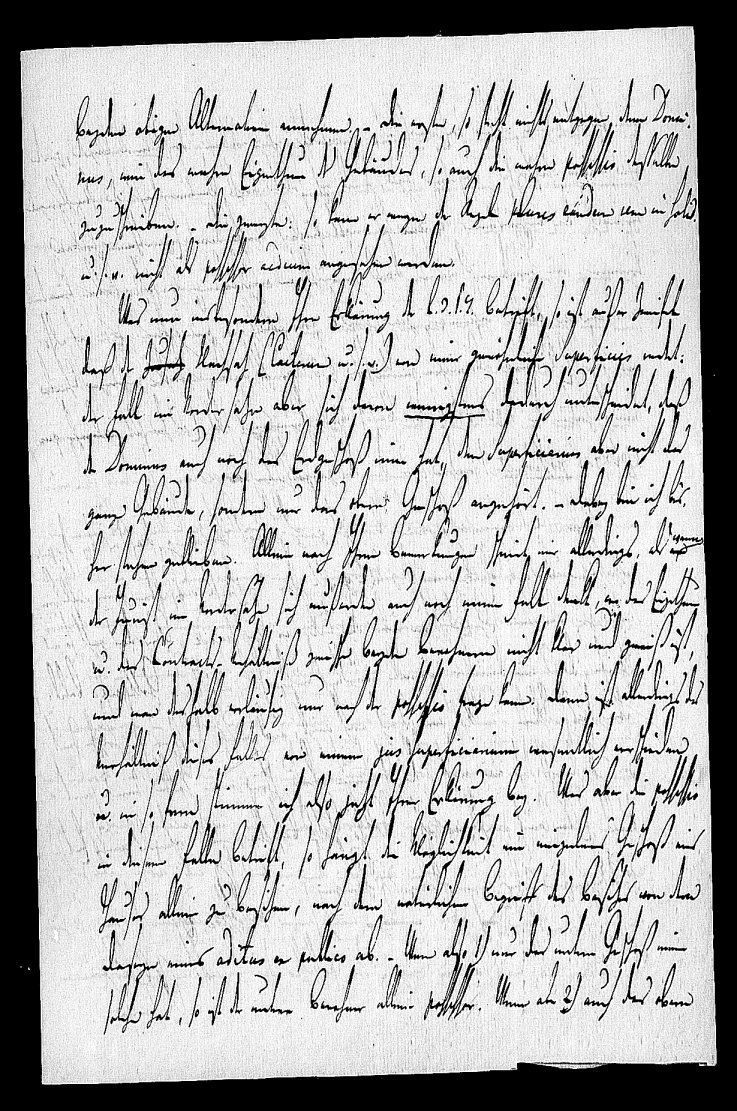 beyden obigen Alternativen annehmen. – Die erste, so steht nichts entgegen, dem Domi-
nus, wie das wahre Eigenthum des Gebäudes, so auch die wahre possessio desselben
zuzuschreiben. – Die zweyte: so kann er wegen der Regel plures eandem rem in solid.
u. s. w. nicht als possessor angesehen werden.
Was nun insbesondere Ihre Erklärung der betrifft, so ist außer Zweifel
daß der Nachsatz (Caeterum u. s. w.) von einer gewöhnlichen Superficies redet:
der Fall im Vordersatze aber sich davon wenigstens dadurch unterscheidet, daß
der Dominus auch noch das Erdgeschoß inne hat, dem Superficiarius aber nicht das
ganze Gebäude, sondern nur das obere Geschoß angehört. – Dabey bin ich bis-
her stehen geblieben. Allein nach Ihren Bemerkungen scheint mir allerdings, als wenn
der Jurist im Vordersatze sich außerdem auch noch einen Fall denkt, wo das Eigenthum
u. das Contracts-Verhältniß zwischen beyden Bewohnern nicht klar und gewiß ist,
und man deshalb vorläufig nur nach der possessio fragen kann. Dann ist allerdings das
Verhältniß dieses Falles von einem jus superficiarium wesentlich verschieden
u. in so fern stimme ich also jetzt Ihrer Erklärung bey. Was aber die possessio
in diesem Falle betrifft, so hängt die Möglichkeit ein einzelnes Geschoß eines
Hauses allein zu besitzen, nach dem natürlichen Begriff des Besitzes von dem
Daseyn eines aditus ex publico ab. – Wenn also 1) nur das untere Geschoß einen
solchen hat, so ist der untere Bewohner allein possessor. Wenn aber 2) auch das obere